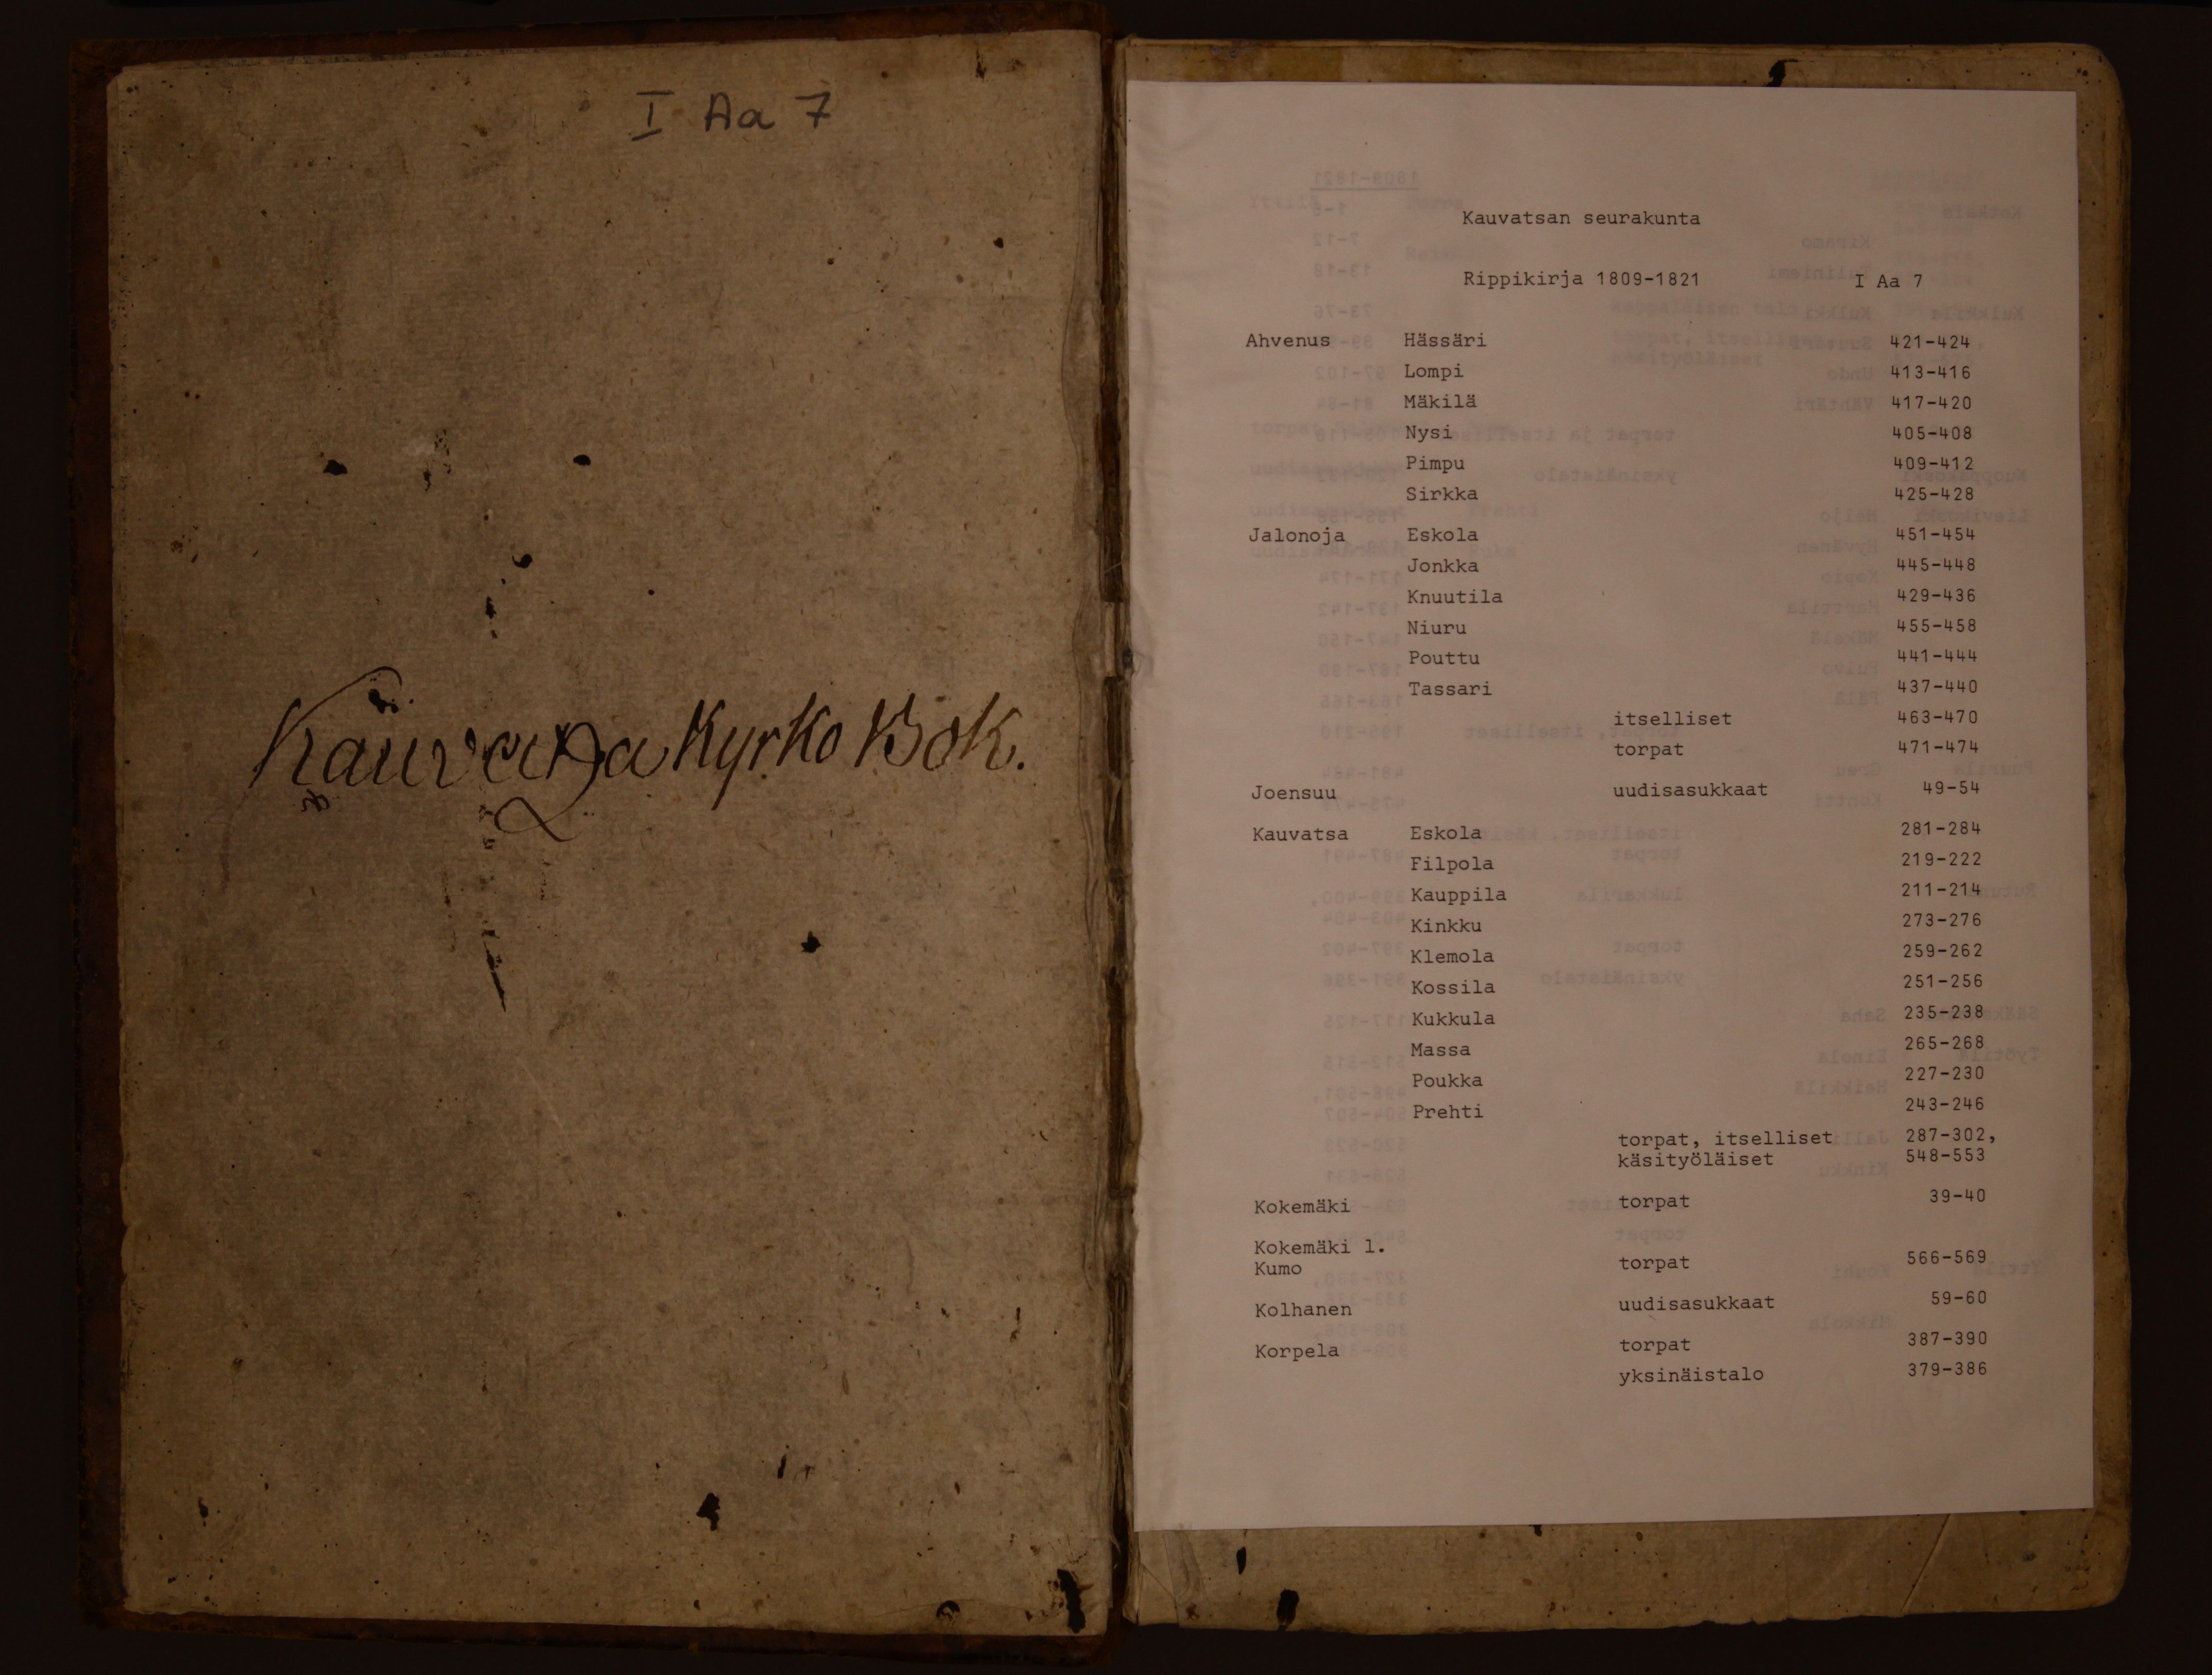 I Aa 7
Kauvatsa Kyrko Bok.
Kauvatsan seurakunta
Rippikirja 1809-1821 I Aa 7
Ahvenus Hässäri 421-424
Lompi 413-416
Mäkilä 417-420
Nysi 405-408
Pimpu 409-412
Sirkka 425-428
Jalonoja Eskola 451-454
Jonkka 445-448
Knuutila 429-436
Niuru 455-458
Pouttu 441-444
Tassari 437-440
itselliset 463-470
torpat 471-474
Joensuu uudisasukkaat 49-54
Kauvatsa Eskola 281-284
Filpola 219-222
Kauppila 211-214
Kinkku 273-276
Klemola 259-262
Kossila 251-256
Kukkula 235-238
Massa 265-268
Poukka 227-230
Prehti 243-246
torpat, itselliset 287-302,
käsityöläiset 548-553
Kokemäki torpat 39-40
Kokemäki l.
Kumo torpat 566-569
Kolhanen uudisasukkaat 59-60
Korpela torpat 387-390
yksinäistalo 379-386